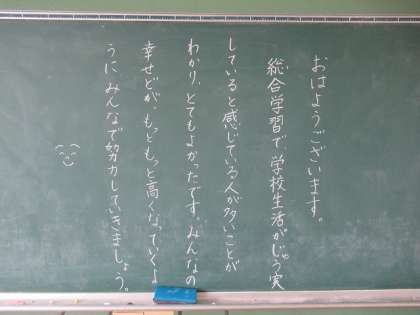 おはようございます。
総合学習で、学校生活がじゅう実
していると感じている人が多いことが
わかり、とてもよかったです。みんなの
幸せどが、もっともっと高くなっていくよ
うに、みんなで努力していきましょう。